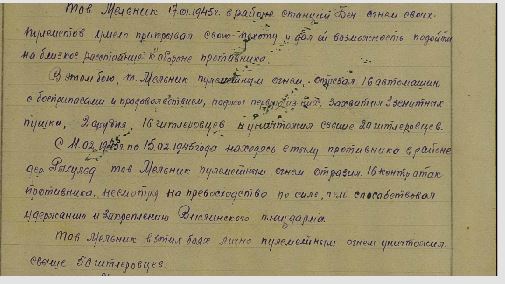 Тов Мельник 17.01.1945г. в районе станции огнем своих
пулеметов умело прикрывал свою пехоту и дал ей возможность подойти
на близкое расстояние к обороне противника.
В этом бою, т. Мельник пулеметным огнем отрезал 16 автомашин
с боеприпасами и продовольствием, поджог первую из них, захватил 2 зенитных
пушки, 2 орудия, 16 гитлеровцев и уничтожил свыше 20 гитлеровцев.
С 11.02.1945г по 15.02.1945года находясь в тылу противника в районе
дер. тов Мельник пулеметным огнем отразил 16 контратак
противника, несмотря на превосходство по силе, чем способствовал
удержанию и закреплению плацдарма.
Тов Мельник в этих боях лично пулеметным огнем уничтожил
свыше 50 гитлеровцев.